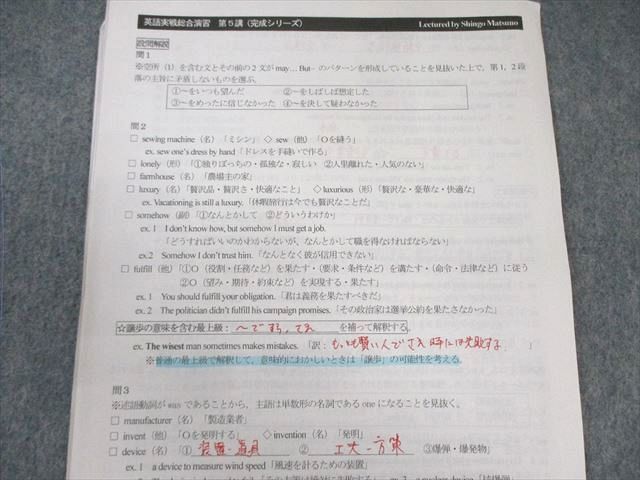 英語実戦総合演習 第5講(完成シリーズ) Lectured by Shingo Matsuno
設問解説
問1
※空所(1)を含む文とその前の2文が may… But~ のパターンを形成していることを見抜いた上で、第1, 2段
落の主旨に矛盾しないものを選ぶ。
①~をいつも望んだ ②~をしばしば想定した
③~をめったに信じなかった ④~を決して疑わなかった
問2
□ sewing machine(名)「ミシン」 ◇ sew(他)「Oを縫う」
ex. sew one's dress by hand「ドレスを手縫いで作る」
□ lonely(形)「①独りぼっちの・孤独な・寂しい ②人里離れた・人気のない」
□ farmhouse(名)「農場主の家」
□ luxury(名)「贅沢品・贅沢さ・快適なこと」 ◇ luxurious(形)「贅沢な・豪華な・快適な」
ex. Vacationing is still a luxury.「休暇旅行は今でも贅沢なことだ」
□ somehow(副)「①なんとかして ②どういうわけか」
ex. 1 I don't know how, but somehow I must get a job.
「どうすればいいのかわからないが、なんとかして職を得なければならない」
ex.2 Somehow I don't trust him.「なんとなく彼が信用できない」
□ fulfill(他)「①O(役割・任務など)を果たす・(要求・条件など)を満たす・(命令・法律など)に従う
②O(望み・期待・約束など)を実現する・果たす」
ex. 1 You should fulfill your obligation.「君は義務を果たすべきだ」
ex. 2 The politician didn't fulfill his campaign promises.「その政治家は選挙公約を果たさなかった」
☆譲歩の意味を含む最上級: ~ですら, でさえ を補って解釈する。
ex. The wisest man sometimes makes mistakes. 「訳: もっとも賢い人でさえ 時には失敗する. 」
※普通の最上級で解釈して、意味的におかしいときは「譲歩」の可能性を考える。
問3
※述語動詞が was であることから、主語は単数形の名詞である one になることを見抜く。
□ manufacturer(名)「製造業者」
□ invent(他)「Oを発明する」 ◇ invention(名)「発明」
□ device(名)「① 装置・道具 ② 工夫・方策 ③爆弾・爆発物」
ex. 1 a device to measure wind speed「風速を計るための装置」